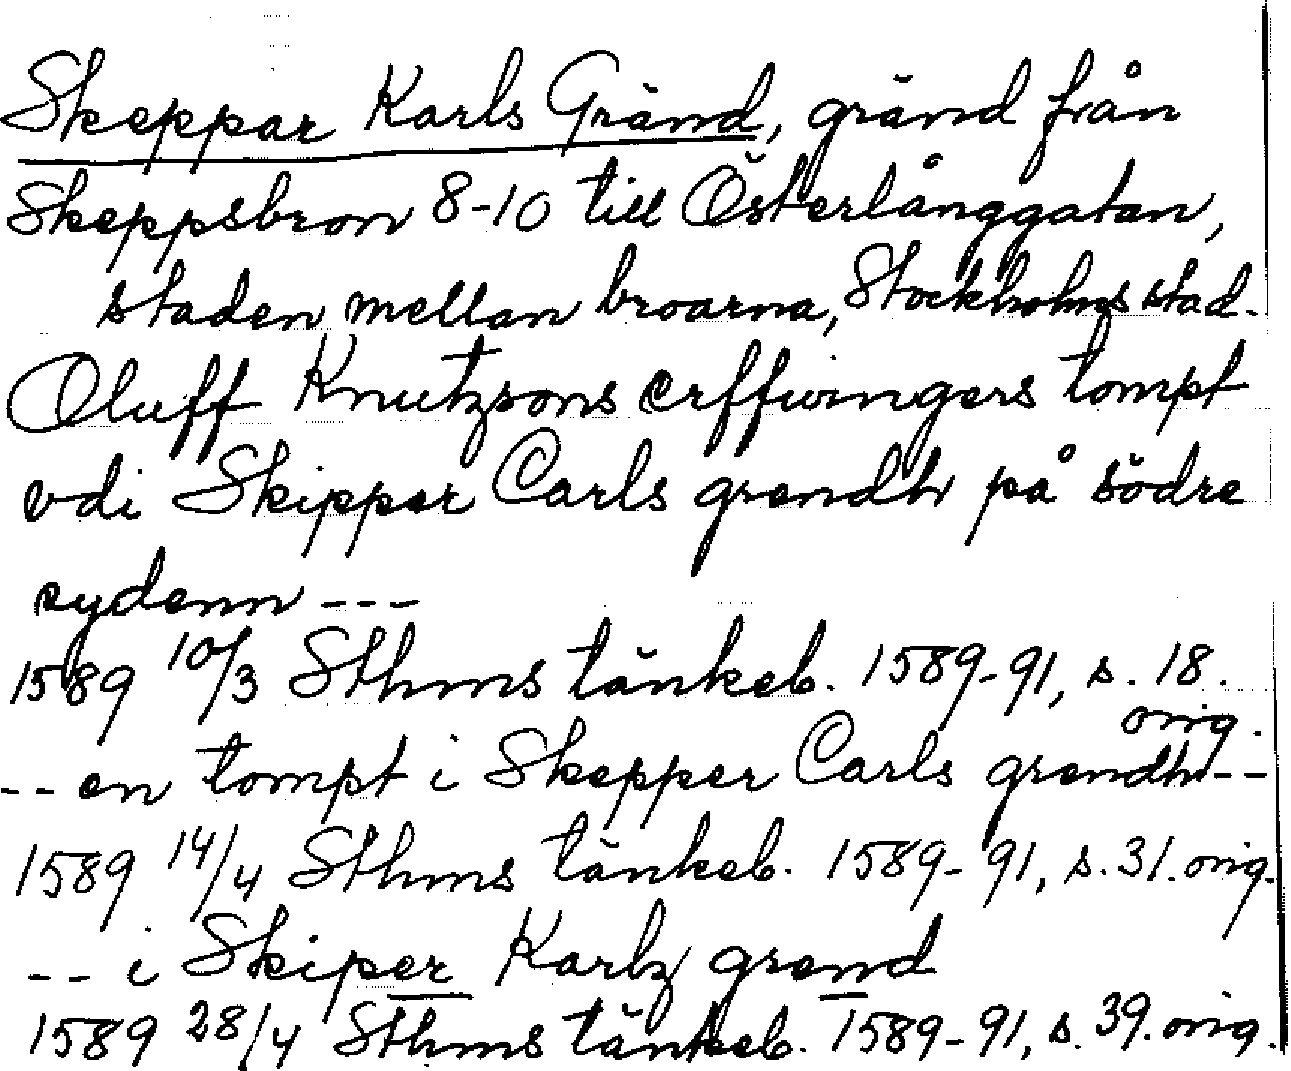 Skeppar Karls Gränd, gränd från
Skeppsbron 8-10 till Österlånggatan,
staden mellan broarna, Stockholms stad.
Oluff Knutzsons erffwingers tompt
vdi Skipper Carls grendh på södre
sydenn ---
1589 10/3 Sthms tänkeb. 1589-91, s. 18. orig.
-- en tompt i Skepper Carls grendh --
1589 14/4 Sthms tänkeb. 1589-91, s. 31. orig.
-- i Skiper Karlz grend
1589 28/4 Sthms tänkeb. 1589-91, s. 39. orig.